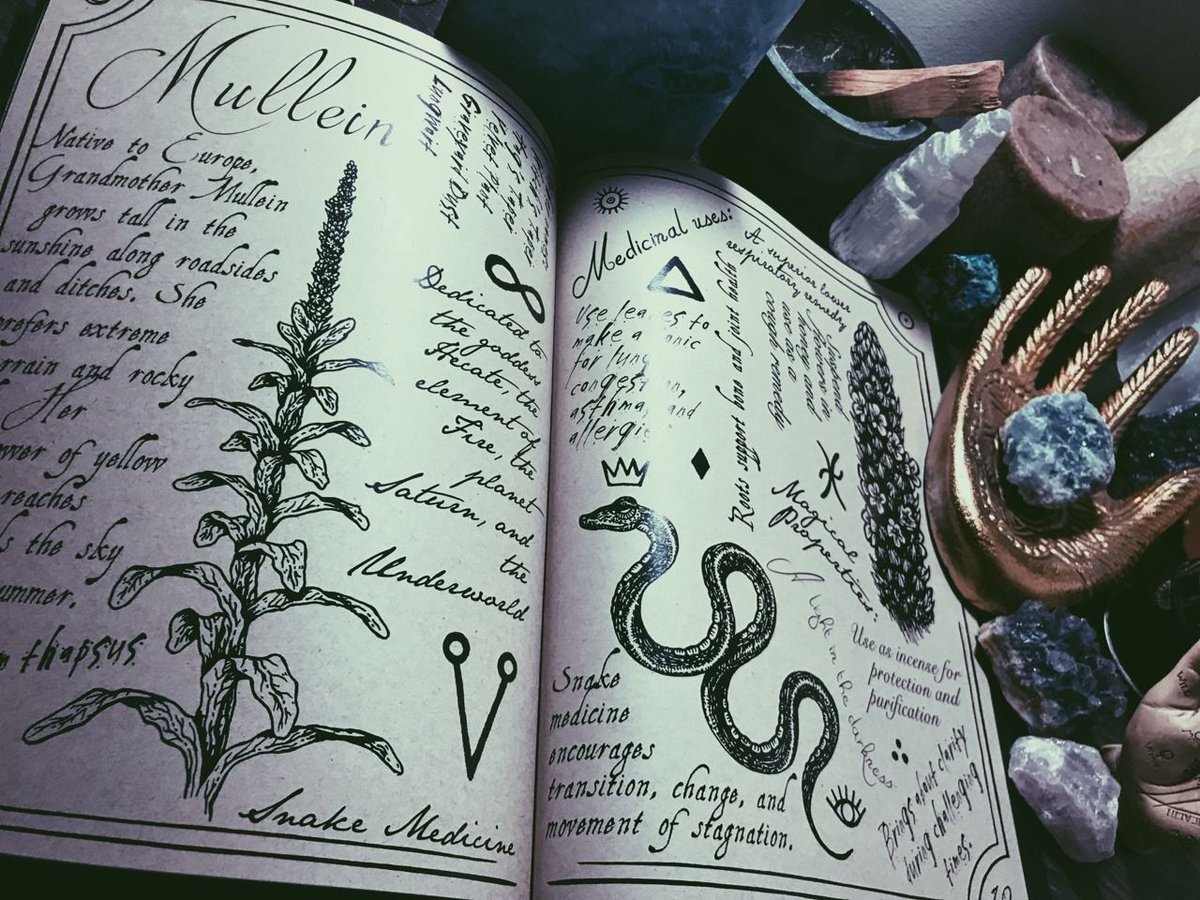 Mullein
Native to Europe,
Grandmother Mullein
grows tall in the
sunshine along roadsides
and ditches. She
prefers extreme
and rocky
Her
of yellow
reaches
the sky
thapsus
Lungwort
Graveyard Dust
Velvet Plant
Dedicated to
the goddess
Hecate, the
element of
Fire, the
planet
Saturn, and
the
Underworld
Snake Medicine
Medicinal uses:
Use leaves to
make a tonic
for lung
congestion,
asthma, and
Roots support bone and joint health
A superior lower
respiratory remedy
cough remedy
Magical
Properties:
A light in the darkness
Use as incense for
protection and
purification
Brings about clarity
during challenging
times.
Snake
medicine
encourages
transition, change, and
movement of stagnation.